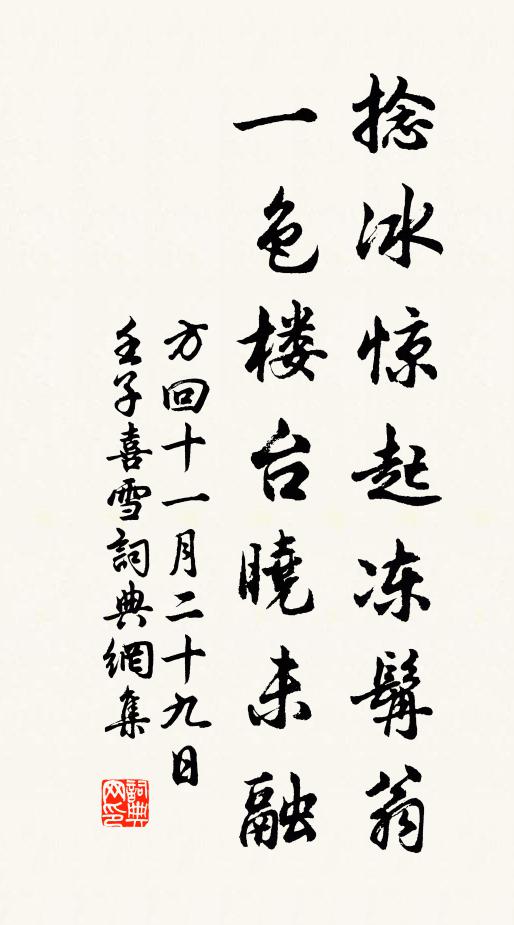 捻冰惊起冻髯翁
一色楼台曉未融
方回十一月二十九日
壬子喜雪詞典網集
詞典
网印